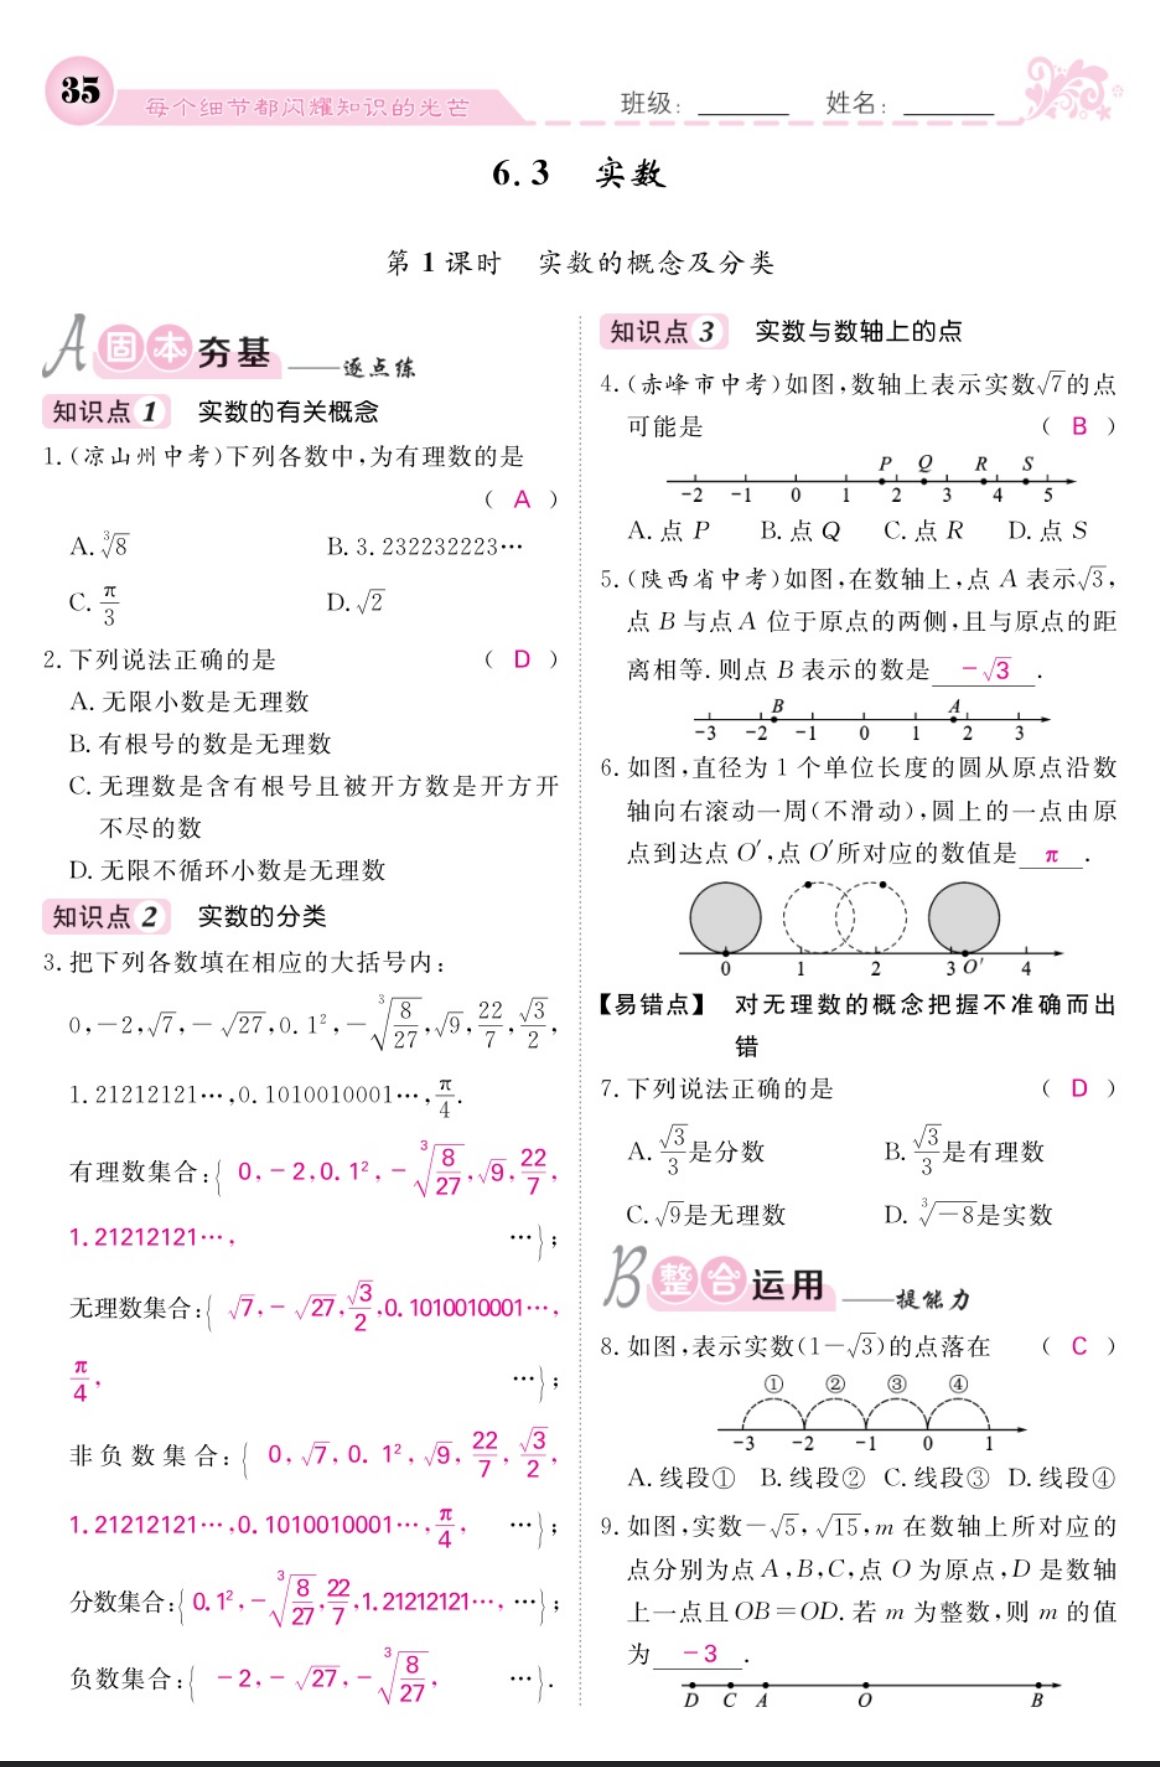 35
每个细节都闪耀知识的光芒 班级：______ 姓名：______
6.3 实数
第1课时 实数的概念及分类
A 固本夯基 ——逐点练
知识点1 实数的有关概念
1.(凉山州中考)下列各数中,为有理数的是
( A )
A.∛8 B.3.232232223…
C.π/3 D.√2
2.下列说法正确的是 ( D )
A.无限小数是无理数
B.有根号的数是无理数
C.无理数是含有根号且被开方数是开方开
不尽的数
D.无限不循环小数是无理数
知识点2 实数的分类
3.把下列各数填在相应的大括号内:
0,-2,√7,-√27,0.1²,-∛(8/27),√9,22/7,√3/2,
1.21212121…,0.1010010001…,π/4.
有理数集合:{ 0,-2,0.1²,-∛(8/27),√9,22/7,
1.21212121…, …};
无理数集合:{ √7,-√27,√3/2,0.1010010001…,
π/4, …};
非负数集合:{ 0,√7,0.1²,√9,22/7,√3/2,
1.21212121…,0.1010010001…,π/4, …};
分数集合:{ 0.1²,-∛(8/27),22/7,1.21212121…,…};
负数集合:{ -2,-√27,-∛(8/27), …}.
知识点3 实数与数轴上的点
4.(赤峰市中考)如图,数轴上表示实数√7的点
可能是 ( B )
P Q R S
-2 -1 0 1 2 3 4 5
A.点 P B.点 Q C.点 R D.点 S
5.(陕西省中考)如图,在数轴上,点 A 表示√3,
点 B 与点 A 位于原点的两侧,且与原点的距
离相等.则点 B 表示的数是 -√3 .
B A
-3 -2 -1 0 1 2 3
6.如图,直径为1个单位长度的圆从原点沿数
轴向右滚动一周(不滑动),圆上的一点由原
点到达点 O′,点 O′所对应的数值是 π .
0 1 2 3 O′ 4
【易错点】 对无理数的概念把握不准确而出
错
7.下列说法正确的是 ( D )
A.√3/3是分数 B.√3/3是有理数
C.√9是无理数 D.∛-8是实数
B 整合运用 ——提能力
8.如图,表示实数(1-√3)的点落在 ( C )
① ② ③ ④
-3 -2 -1 0 1
A.线段① B.线段② C.线段③ D.线段④
9.如图,实数-√5,√15,m 在数轴上所对应的
点分别为点 A,B,C,点 O 为原点,D 是数轴
上一点且 OB=OD.若 m 为整数,则 m 的值
为 -3 .
D C A O B